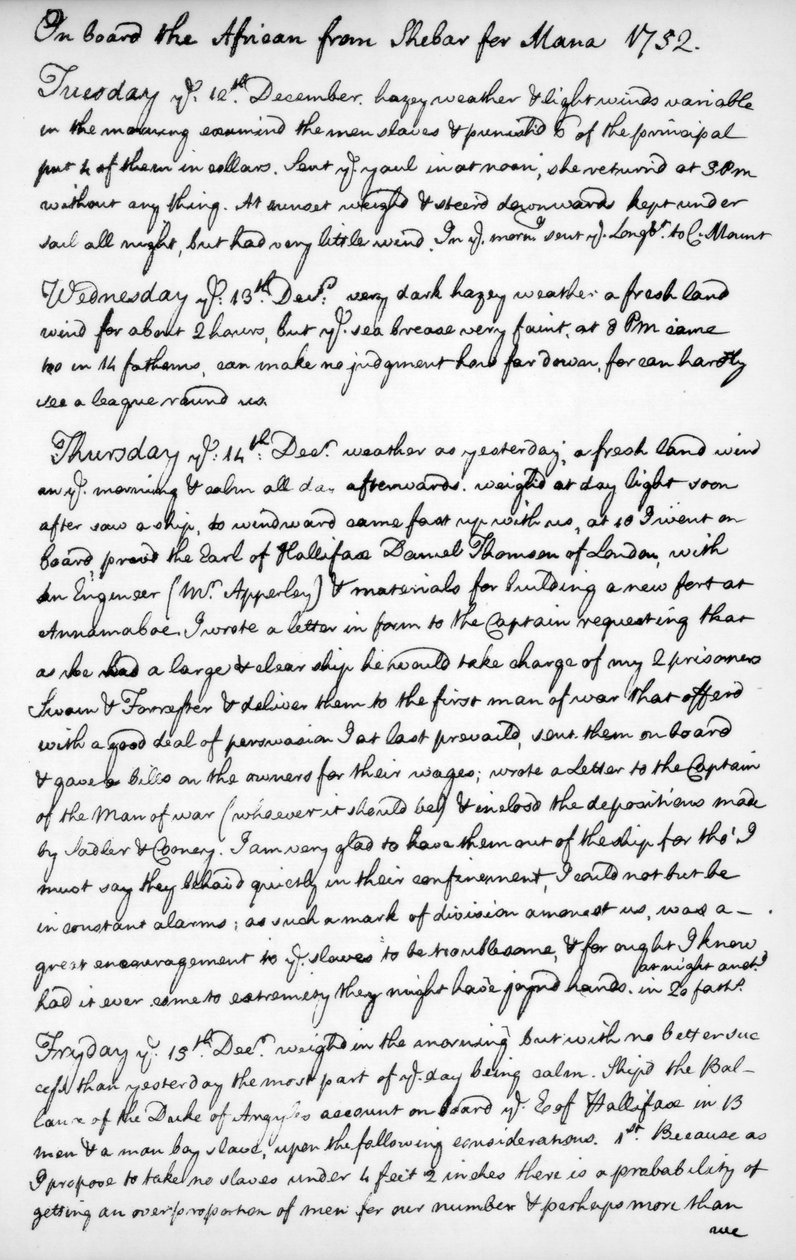 On board the African from Shebar for Mana 1752.
Tuesday yᵉ. 12ᵗʰ December. hazey weather & light winds variable
in the morning examind the men slaves & punish'd 6 of the principal
put 4 of them in collars. Sent yᵉ yaul in at noon, she return'd at 3 Pm
without any thing. At sunset weigh'd & steer'd downwards kept under
sail all night, but had very little wind. In yᵉ. mornᵍ sent yᵉ. Longbᵗ. to C. Mount
Wednesday yᵉ. 13ᵗʰ Decʳ. very dark hazey weather a fresh land
wind for about 2 hours, but yᵉ. sea brease very faint, at 8 Pm came
too in 14 fathoms, can make no judgment how far down, for can hardly
see a league round us.
Thursday yᵉ. 14ᵗʰ. Decʳ. weather as yesterday, a fresh land wind
in yᵉ. morning & calm all day afterwards. weigh'd at day light soon
after saw a ship, to windward came fast up with us, at 10 I went on
board, prov'd the Earl of Hallifax Daniel Thomson of London, with
an Engineer (Mʳ. Apperley) & materials for building a new fort at
Annamaboe. I wrote a letter in form to the Captain requesting that
as he had a large & clear ship he would take charge of my 2 prisoners
Swain & Forrester & deliver them to the first man of war that offerd
with a good deal of perswasion I at last prevaild, sent them on board
& gave bills on the owners for their wages; wrote a Letter to the Captain
of the Man of war (whoever it should be) & inclosd the depositions made
by Sadler & Cooney. I am very glad to have them out of the ship for tho' I
must say they behav'd quietly in their confinement, I could not but be
in constant alarms; as such a mark of division amongst us, was a–
great encouragement to yᵉ. slaves to be troublesome, & for ought I know
had it ever come to extremity they might have joynd hands. at night anctᵈ in 20 fathˢ.
Fryday yᵉ. 15ᵗʰ Decʳ. weigh'd in the morning but with no better suc
cess than yesterday the most part of yᵉ. day being calm. Ship'd the Bal–
lance of the Duke of Argyles account on board yᵉ. E of Hallifax in 13
men & a man boy slave, upon the following considerations. 1ˢᵗ. Because as
I propose to take no slaves under 4 feet 2 inches there is a probability of
getting an over proportion of men for our number & perhaps more than
we